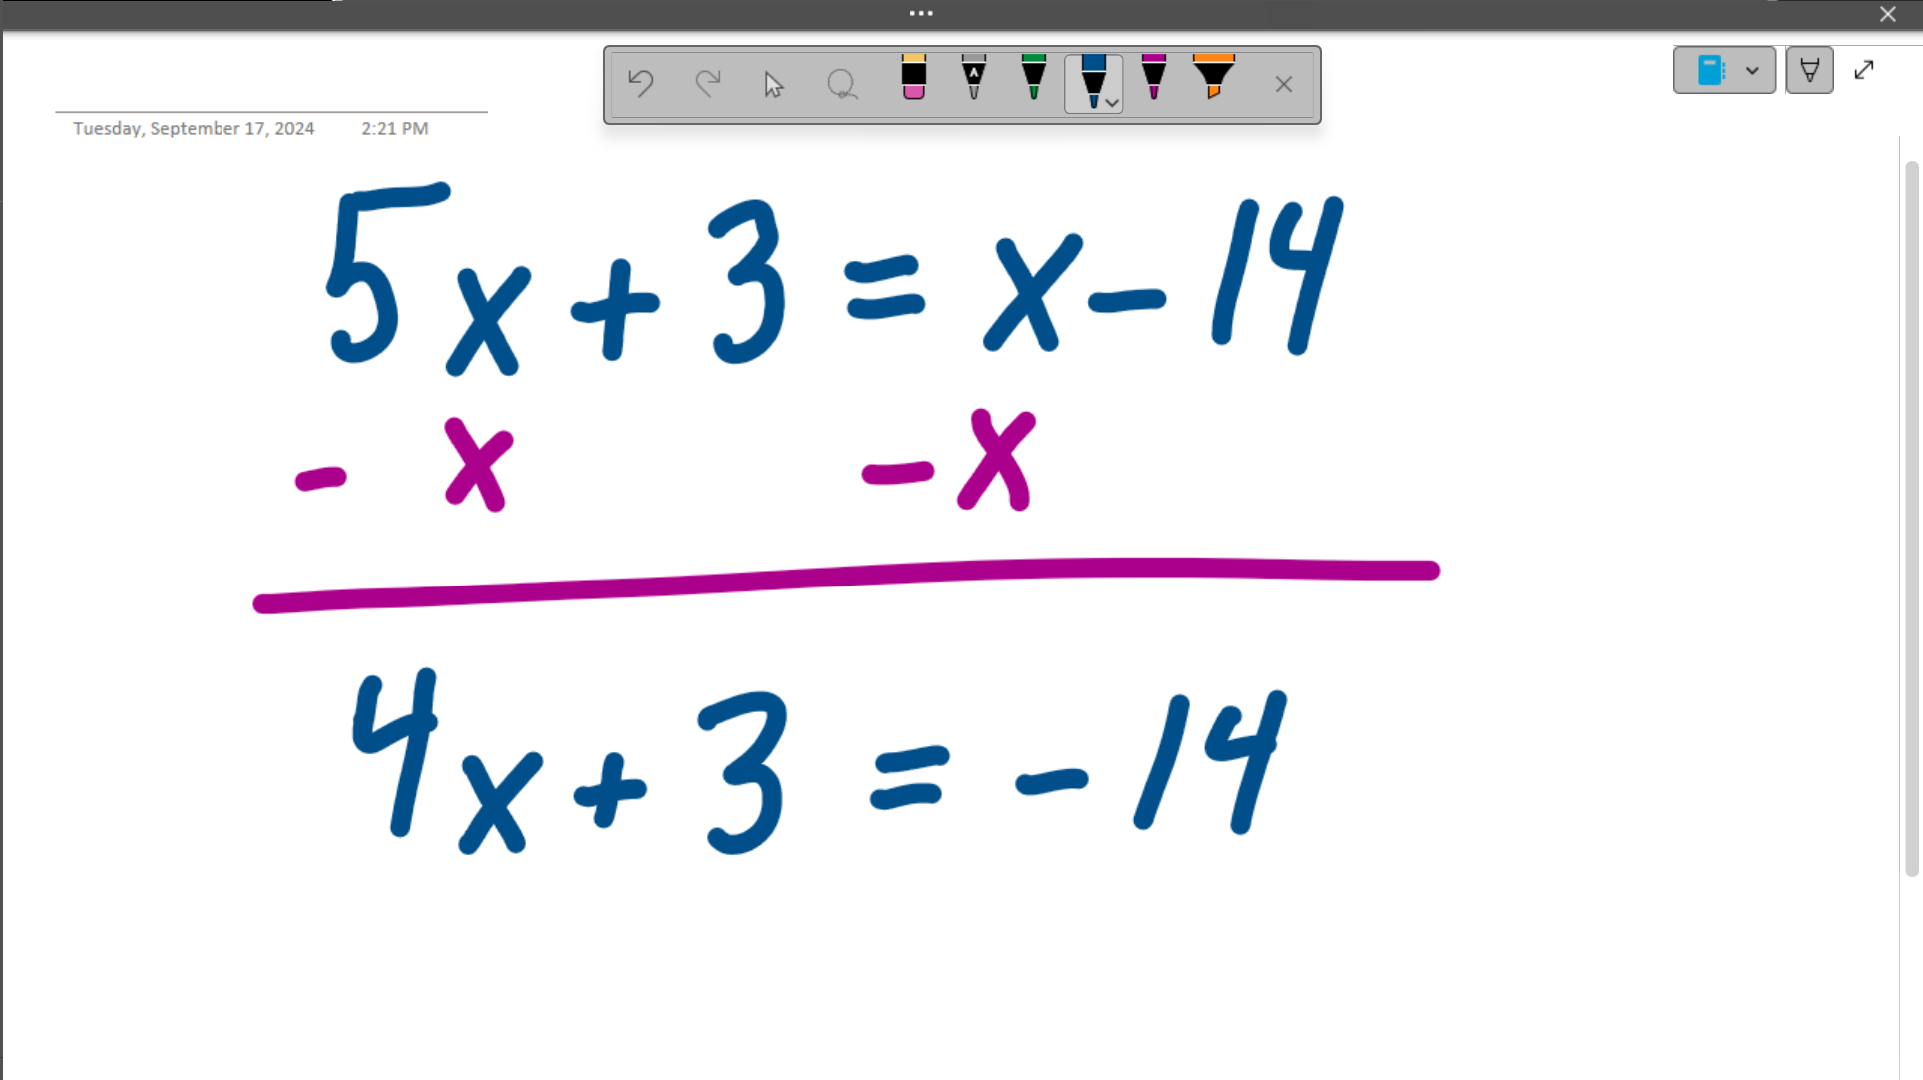 Tuesday, September 17, 2024 2:21 PM
5x + 3 = x - 14
- x - x
4x + 3 = - 14